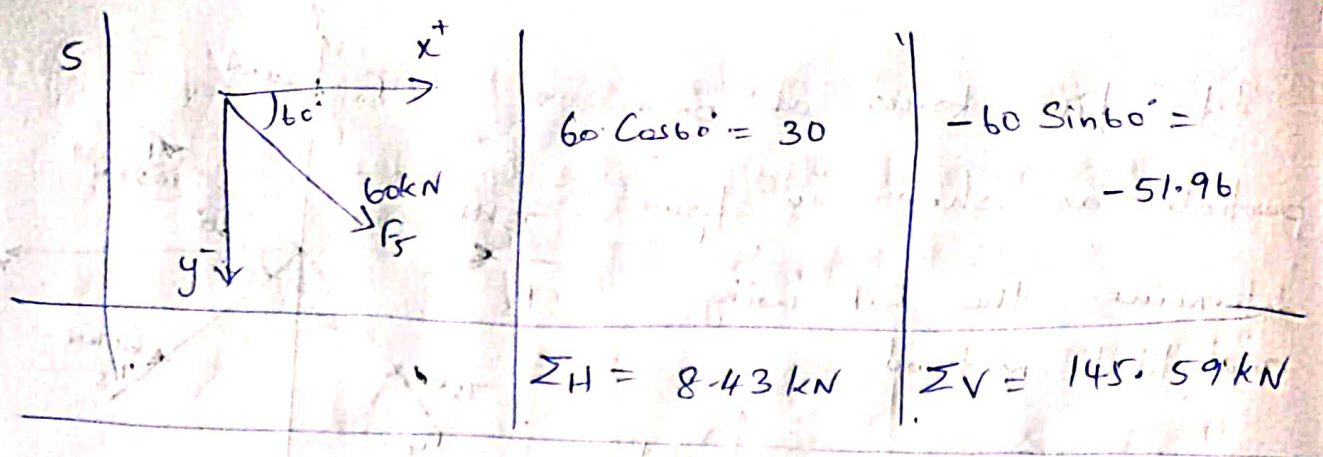 5
x⁺
60°
60kN
F₅
y⁻
60 Cos60° = 30
-60 Sin60° =
-51.96
ΣH = 8.43 kN
ΣV = 145.59 kN